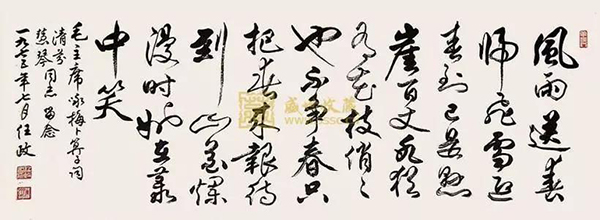 風雨送春
歸飛雪迎
春到已是懸
崖百丈冰猶
有花枝俏〻
也不爭春只
把春來報待
到山花爛
漫時她在叢
中笑
毛主席咏梅卜算子詞
清芬
慧琴同志留念
一九七三年七月任政
盛世收藏